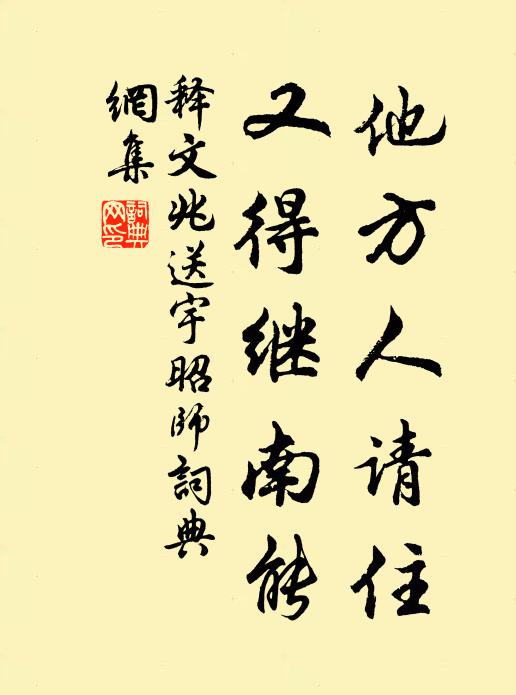 他方人请住
又得继南能
释文兆送宇昭师詞典
網集
詞典網印